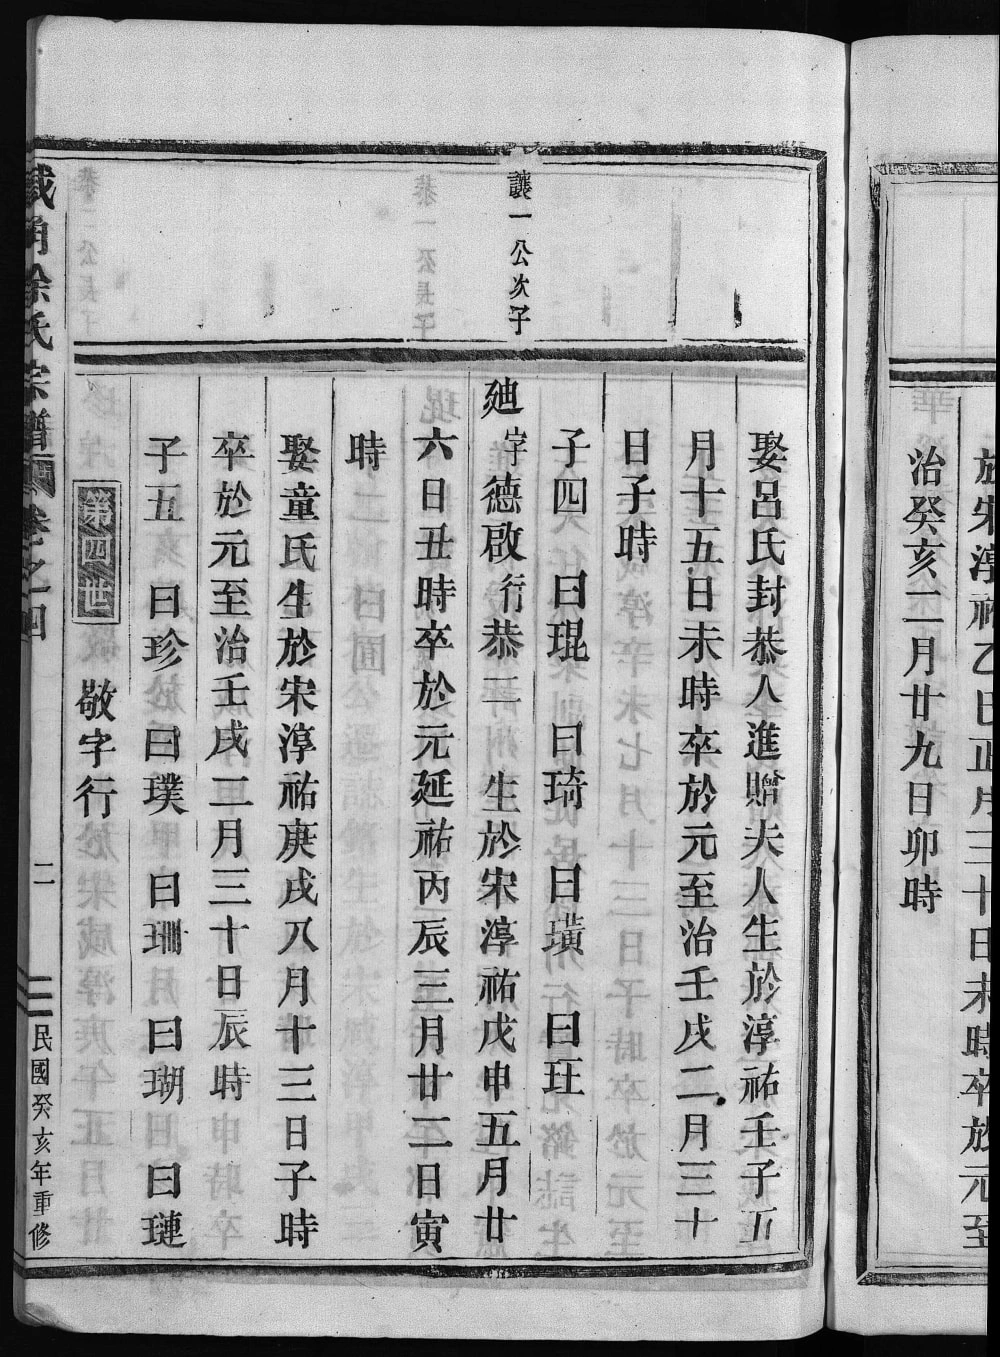 於宋淳祐乙巳正月三十日未時卒於元至
治癸亥二月廿九日卯時
娶呂氏封恭人進贈夫人生於淳祐壬子五
月十五日未時卒於元至治壬戌二月三十
日子時
子四 曰琨 曰琦 曰璜 曰玨
讓一公次子
廸字德啟行恭二 生於宋淳祐戊申五月廿
六日丑時卒於元延祐丙辰三月廿二日寅
時
娶童氏生於宋淳祐庚戌八月十三日子時
卒於元至治壬戌二月三十日辰時
子五 曰珍 曰璞 曰珊 曰瑚 曰璉
第四世 敬字行
徐氏宗譜 卷之四 二 民國癸亥年重修